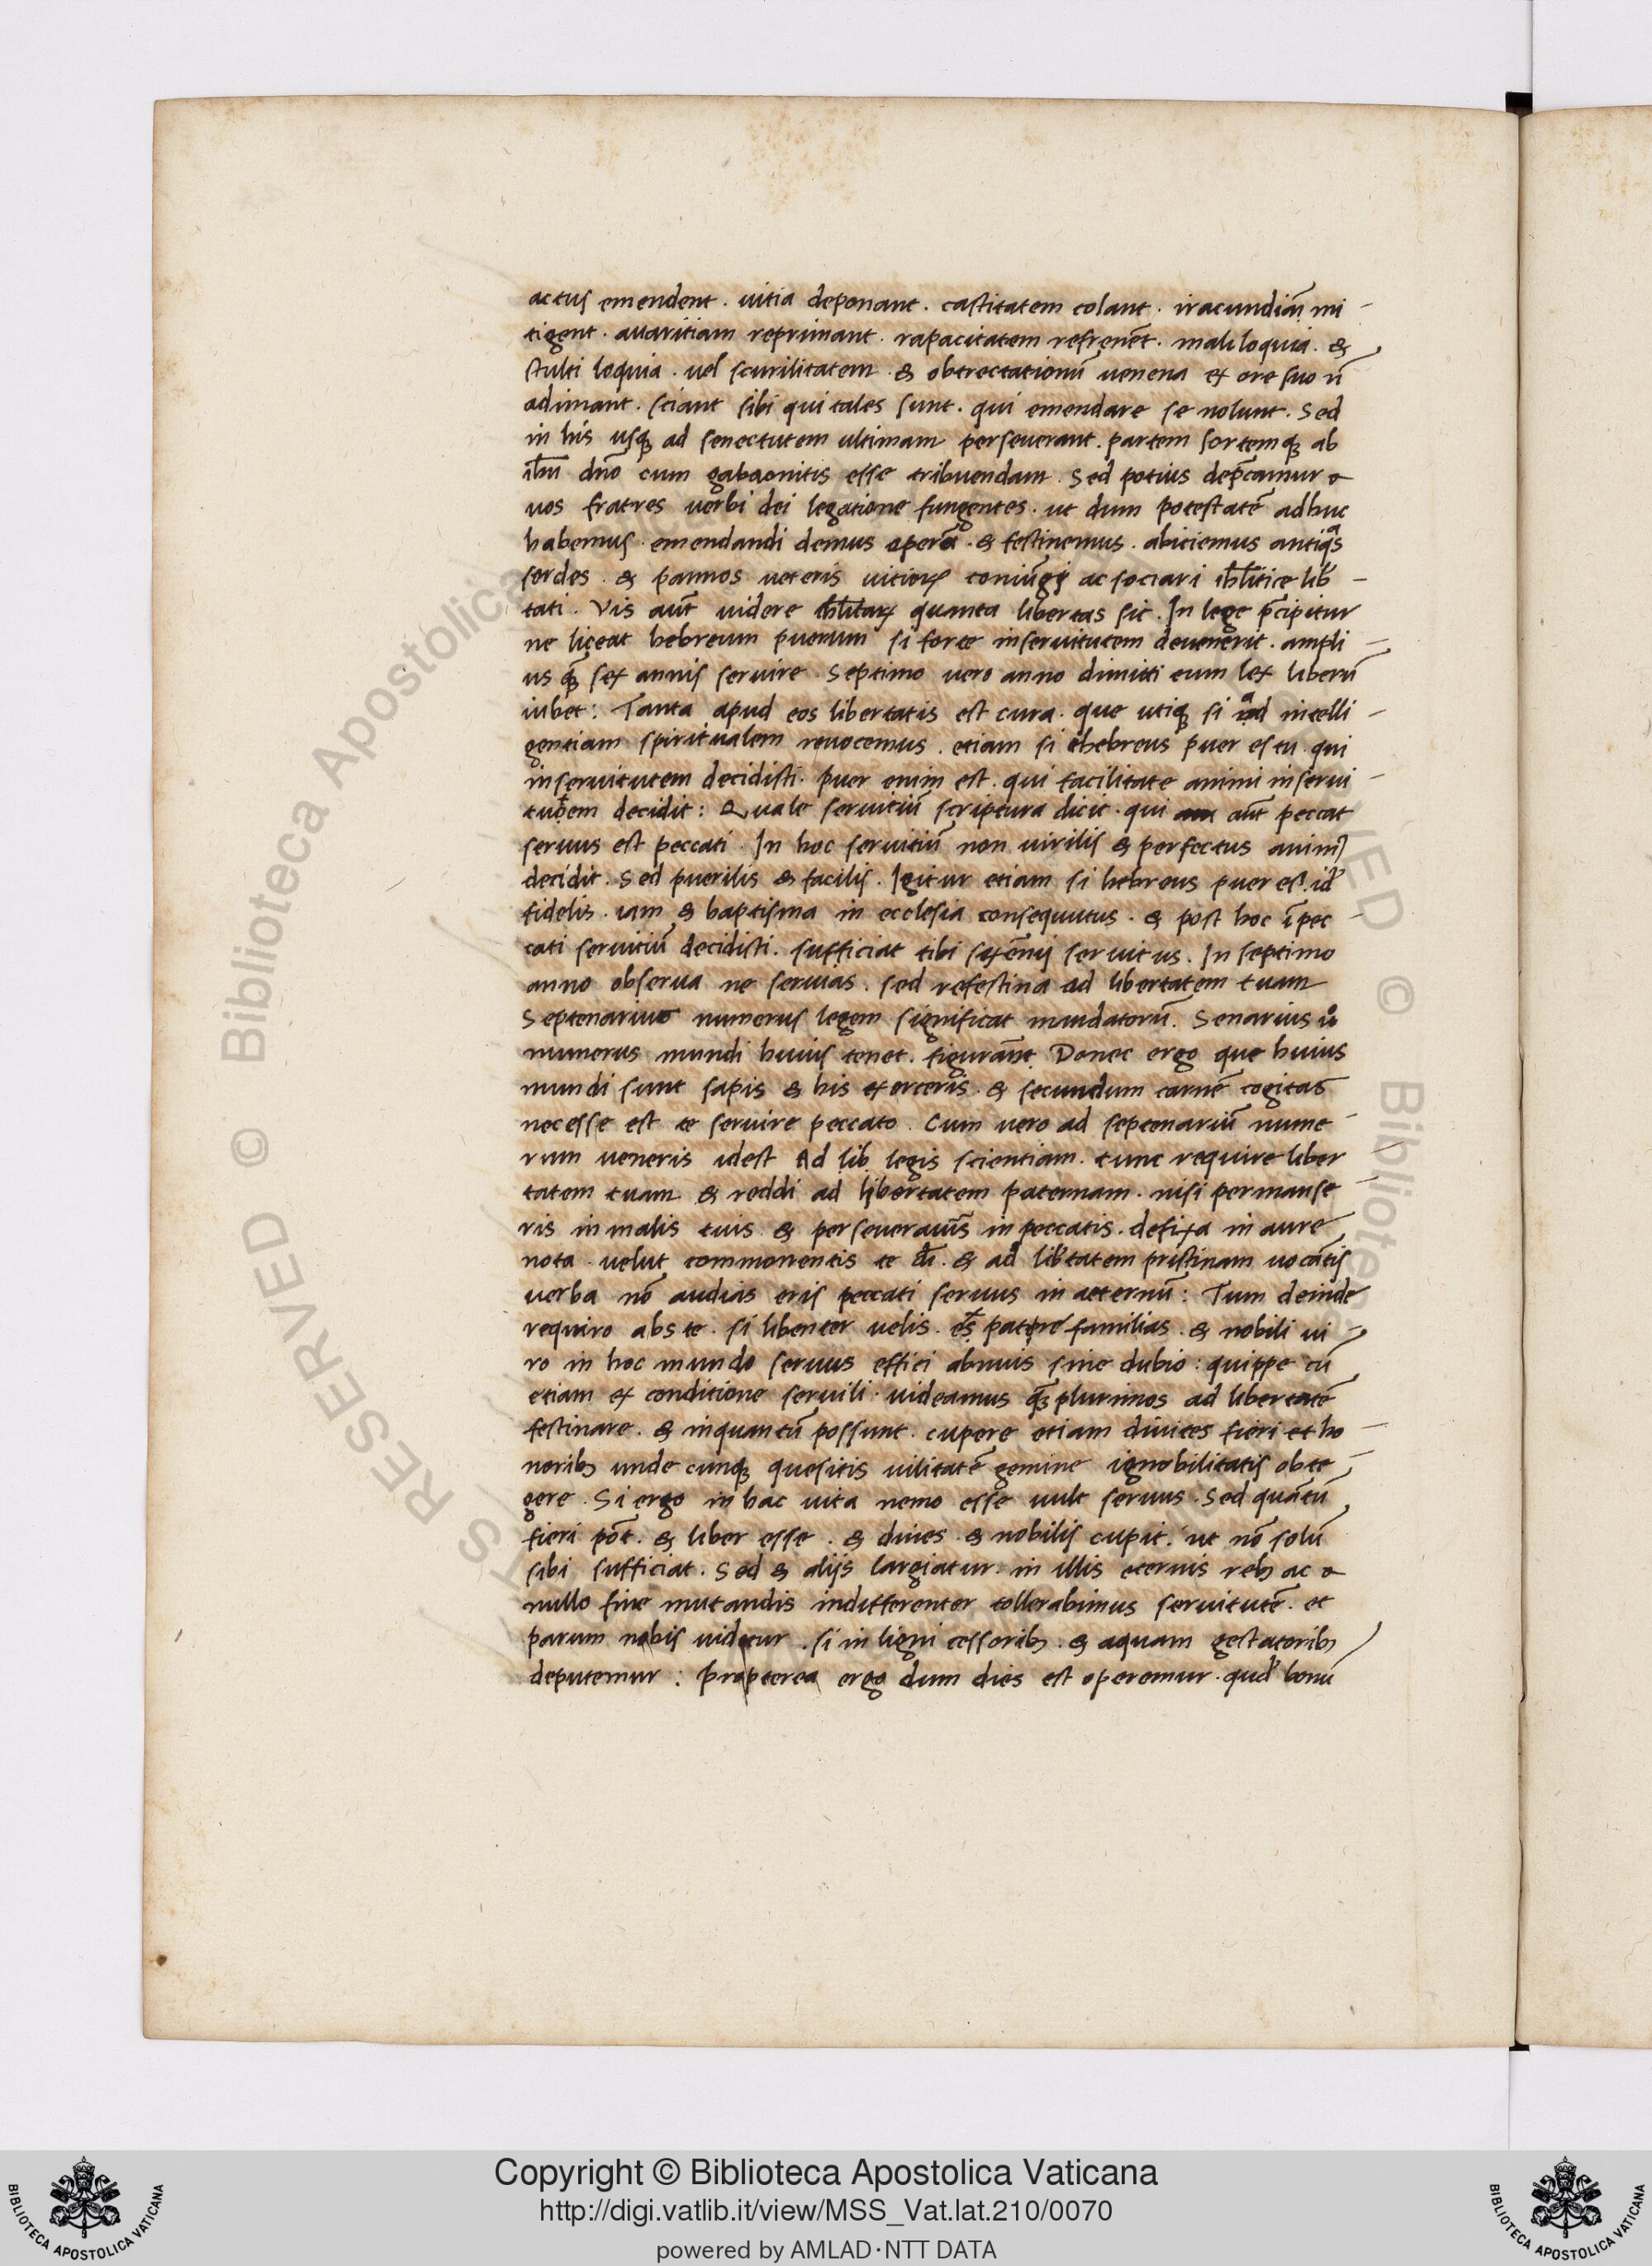 actus emendent . uitia deponant . castitatem colant . iracundiā mi-
tigent . auaritiam reprimant . rapacitatem refrenēt . maliloquia . &
stulti loquia . uel scurilitatem . & obtrectationū uenena ex ore suo ñ
adimant . sciant sibi qui tales sunt . qui emendare se nolunt . Sed
in his usq; ad senectutem ultimam perseuerant . partem sortemq; ab
ihu dño cum gabaonitis esse tribuendam . Sed potius dep̄camur
uos fratres uerbi dei legatione fungentes . ut dum potestatē adhuc
habemus . emendandi demus operā . & festinemus . abiciemus antiqas
sordes . & pannos ueteris uitioꝝ coniūgi ac sociari lib-
tati . Vis aut̄ uidere quanta libertas sit . In lege p̄cipitur
ne liceat hebreum puerum si forte inseruitutem deuenerit . ampli-
us q; sex annis seruire . Septimo uero anno dimitti eum lex liberū
iubet : Tanta apud eos libertatis est cura . que utiq; si ad intelli-
gentiam spiritualem reuocemus . etiam si hebreus puer es tu . qui
inseruitutem decidisti . puer enim est . qui facilitate animi inserui-
tutem decidit : Quale seruitiū scriptura dicit . qui aut̄ peccat
seruus est peccati . In hoc seruitiū non uirilis & perfectus animꝰ
decidit . Sed puerilis & facilis . Igitur etiam si hebreus puer es . id
fidelis . iam & baptisma in ecclesia consequutus . & post hoc ī pec-
cati seruitiū decidisti . sufficiat tibi sexēnij seruitus . In septimo
anno obserua ne seruias . sed refestina ad libertatem tuam
Septenarius numerus legem significat mandatorū . Senarius u͛o
numerus mundi huius tenet . figurām Donec ergo que huius
mundi sunt sapis & his exerceris . & secundum carnē cogitas
necesse est te seruire peccato . Cum uero ad septenariū nume-
rum ueneris idest Ad lib legis scientiam . tunc require liber-
tatem tuam & reddi ad libertatem paternam . nisi permanse-
ris in malis tuis & perseueraueris in peccatis . defixa in aure
nota . uelut commonentis te di . & ad lib̄tatem pristinam uocātis
uerba nō audias eris peccati seruus in aeternū : Tum deinde
requiro abs te . si libenter uelis . familias . & nobili ui-
ro in hoc mundo seruus effici abnuis sine dubio : quippe cū
etiam ex conditione seruili . uideamus q; plurimos ad libertatē
festinare . & inquantū possunt . cupere etiam diuites fieri et ho-
noribꝫ unde cunq; quesitis uilitatē gemine ignobilitatis obte-
gere . Si ergo in hac uita nemo esse uult seruus . Sed quātū
fieri pōt . & liber esse . & diues . & nobilis cupit . ut nō solū
sibi sufficiat . Sed & alijs largiatur . in illis eternis rebꝫ ac
nullo fine mutandis indifferenter tollerabimus seruitutē . et
parum nobis uidetur . si in ligni cessoribꝫ . & aquam gestatoribꝫ
deputemur : Propterea ergo dum dies est operemur . quod bonū
Copyright © Biblioteca Apostolica Vaticana
http://digi.vatlib.it/view/MSS_Vat.lat.210/0070
powered by AMLAD·NTT DATA